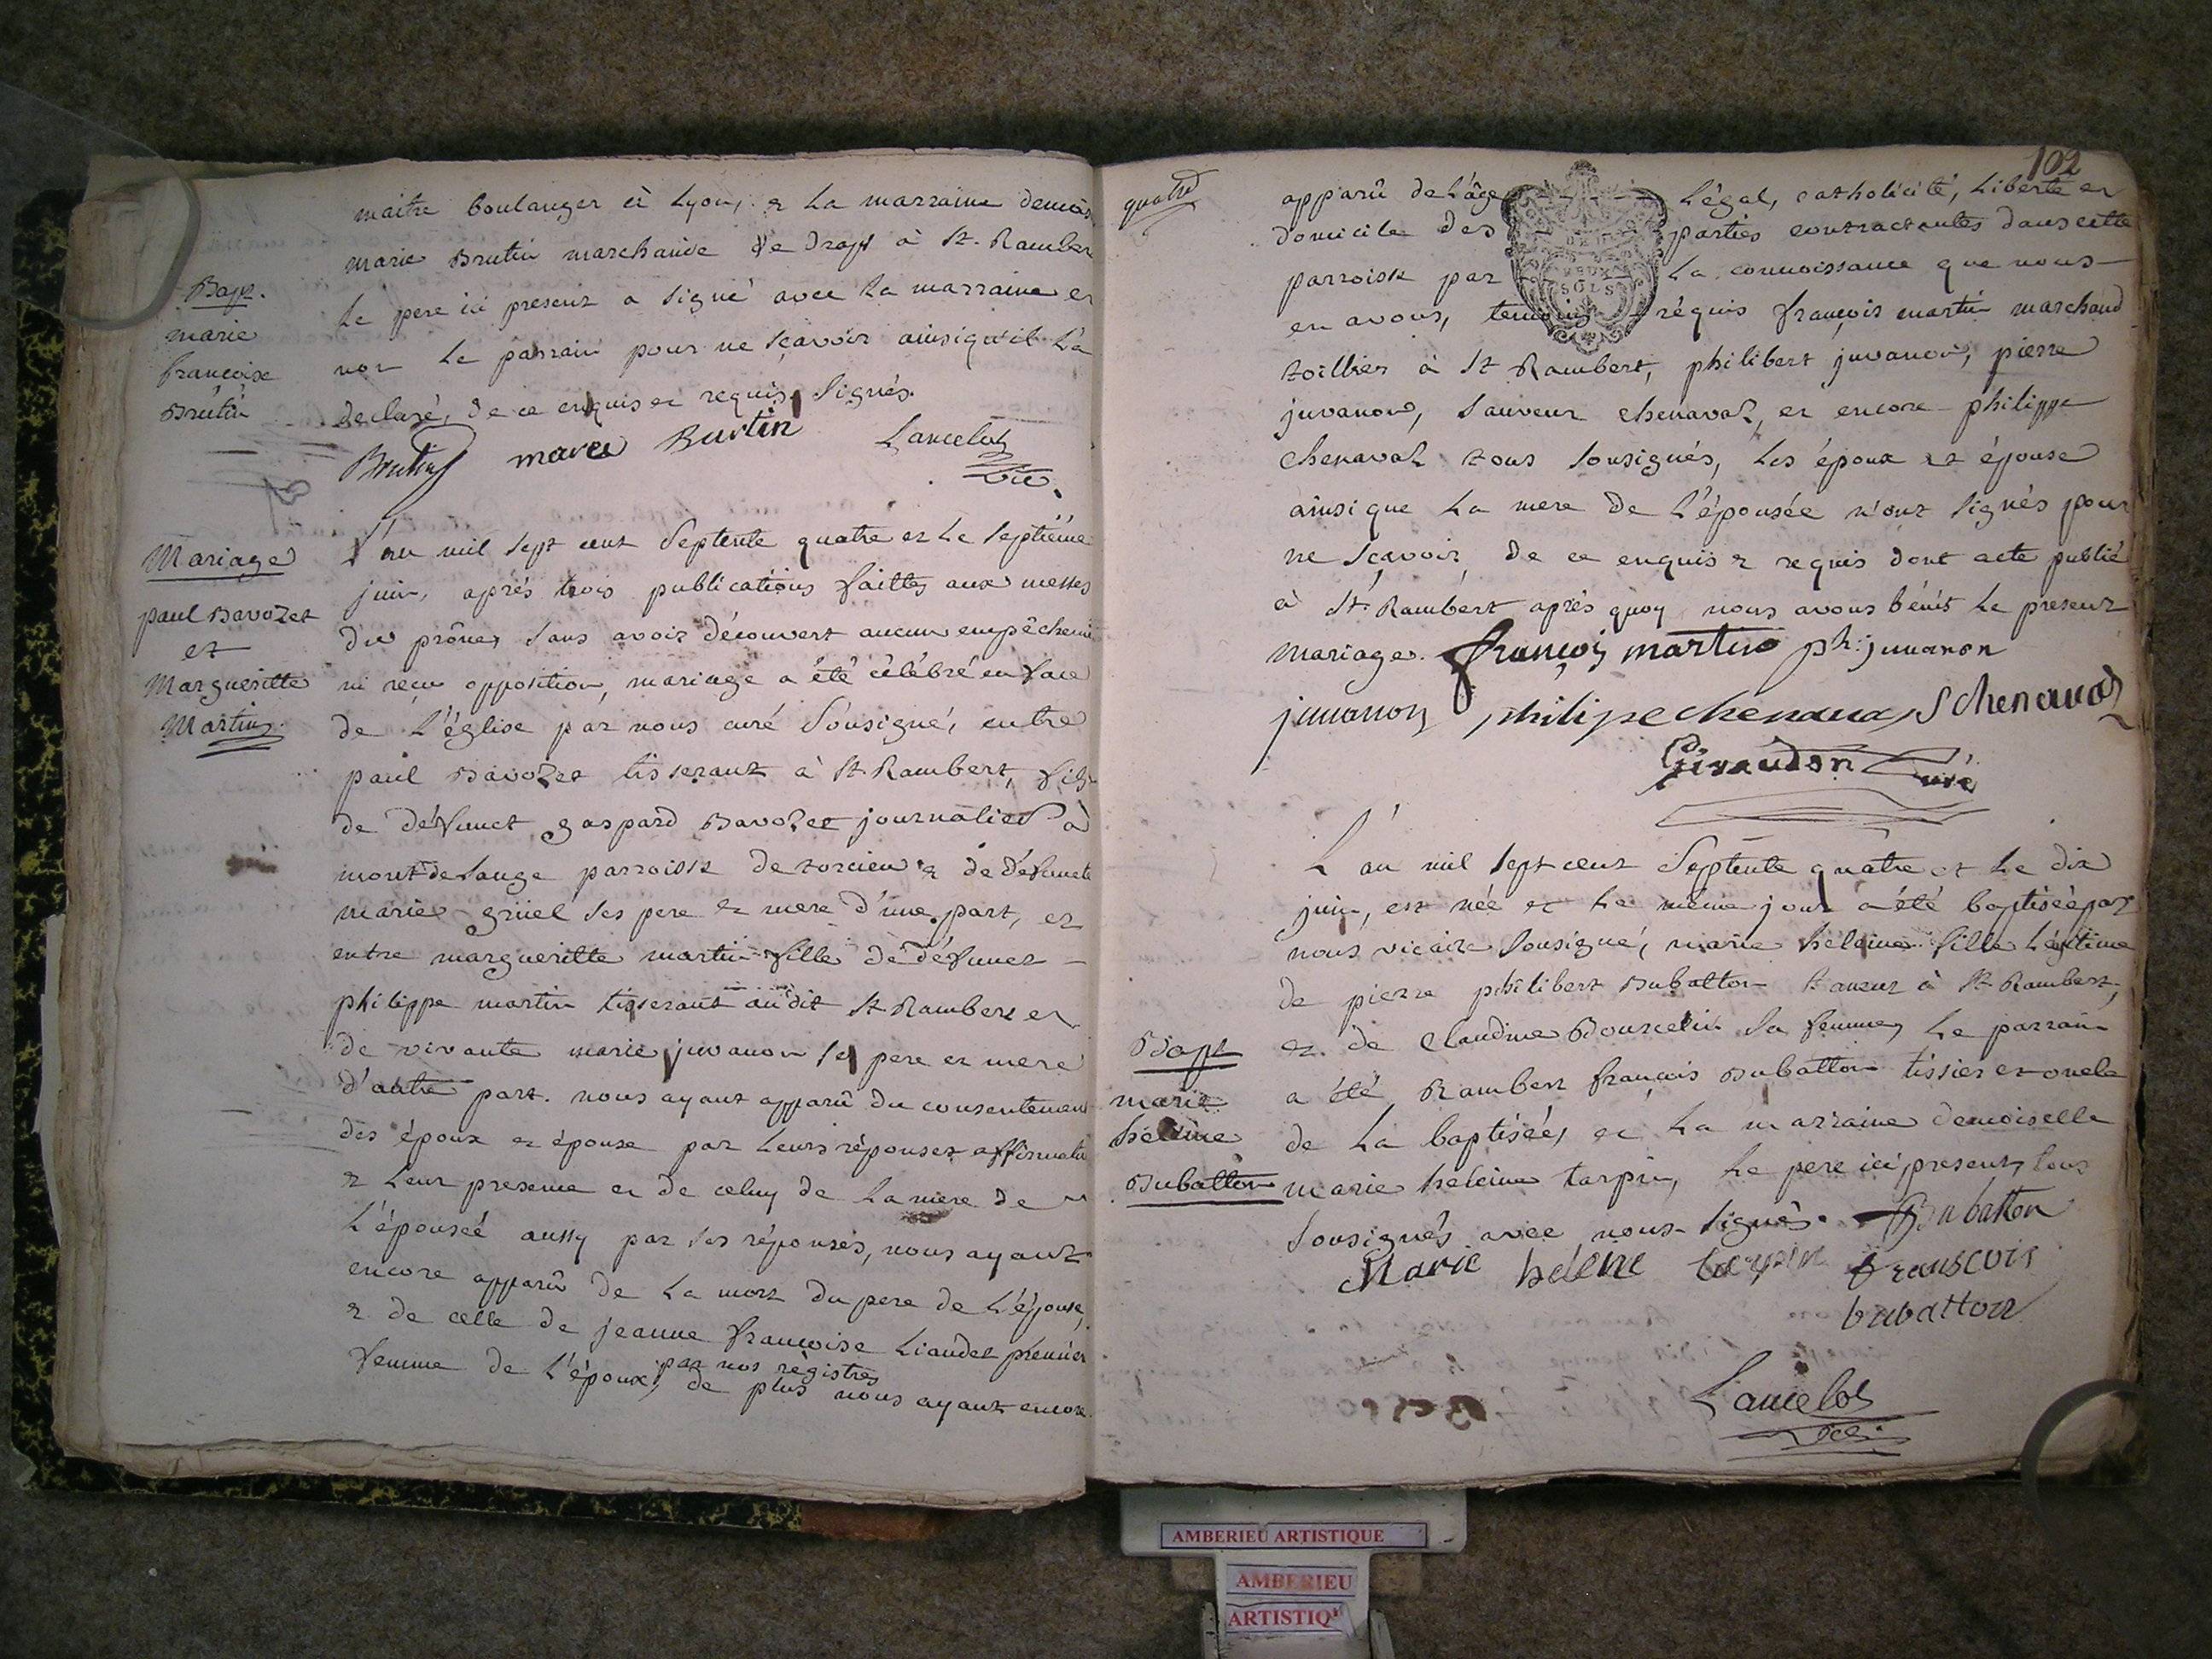 maitre boulanger à Lyon, & La marraine demois
marie Brutin marchande de draps à St. Rambert
Le pere ici present a signé avec La marraine et
non Le parrain pour ne sçavoir ainsiqu'il L'a
declaré, de ce enquis et requis. signés.
Brutin marie Burtin Lancelot
vic.
Bapt.
marie
françoise
Brutin
Mariage
paul Bavozet
et
Margueritte
Martin.
L'an mil sept cent septente quatre et Le septiéme
juin, aprés trois publications faittes aux messes
du prône, sans avoir découvert aucun empêchem
ni reçu opposition, mariage a été célébré en face
de L'église par nous curé soussigné, entre
paul Bavozet tisserant à St Rambert, fils
de défunct gaspard Bavozet journalier à
mont de Lange parroisse de torcieu & de défuncte
marie gruel ses pere et mere d'une part, et
entre margueritte martin fille de défunct
philippe martin tisserant au dit St Rambert et
de vivante marie juvanon ses pere et mere
d'autre part. nous ayant apparû du consentement
des époux et épouse par Leurs réponses affirmativ
& Leur presence et de celuy de La mere de
L'épouseé aussy par ses réponses, nous ayant
encore apparû de La mort du pere de L'épouse,
& de celle de jeanne françoise Liaudet premier
par nos régistres
femme de L'époux, de plus nous ayant encore
quatre
102
apparû de L'âge Légal, catholicité, Liberté et
domicile des parties contractantes dans cette
parroisse par La connoissance que nous
en avons, temoins réquis françois martin marchand
toillier à St Rambert, philibert juvanon, pierre
juvanon, sauveur chenaval, et encore philippe
chenaval tous soussignés, Les époux et épouse
ainsi que La mere de L'épousée n'ont signés pour
ne sçavoir, de ce enquis & requis dont acte publié
à St. Rambert aprés quoy nous avons bénit Le present
mariage. françois martin ph: juuanon
juuanon philipe chenaual S chenaual
Giraudon Curé
L'an mil sept cent septente quatre et Le dix
juin, est née et Le même jour a été baptisée par
nous vicaire soussigné, marie heleine fille Légitime
de pierre philibert Dubatton taneur à St Rambert,
et de Claudine Bourcelin sa femme, Le parrain
a été Rambert françois Dubatton tissier et oncle
de La baptisée, et La marraine demoiselle
marie heleine tarpin, Le pere ici present, tous
soussignés avec nous signés. Dubatton
Marie helene tarpin franscois
dubatton
Lancelot
vic.
Bapt
marie
heleine
Dubatton
AMBERIEU ARTISTIQUE
AMBERIEU
ARTISTIQ